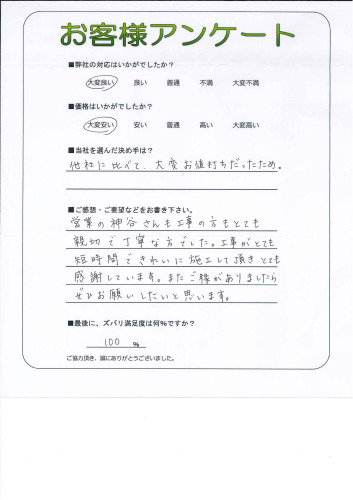 お客様アンケート
■弊社の対応はいかがでしたか？
大変良い 良い 普通 不満 大変不満
■価格はいかがでしたか？
大変安い 安い 普通 高い 大変高い
■当社を選んだ決め手は？
他社に比べて、大変お値打ちだったため。
■ご感想・ご要望などをお書き下さい。
営業の神谷さんも工事の方もとても
親切で丁寧な方でした。工事がとても
短時間できれいに施工して頂きとても
感謝しています。またご縁がありましたら
ぜひお願いしたいと思います。
■最後に、ズバリ満足度は何%ですか？
100 %
ご協力頂き、誠にありがとうございました。